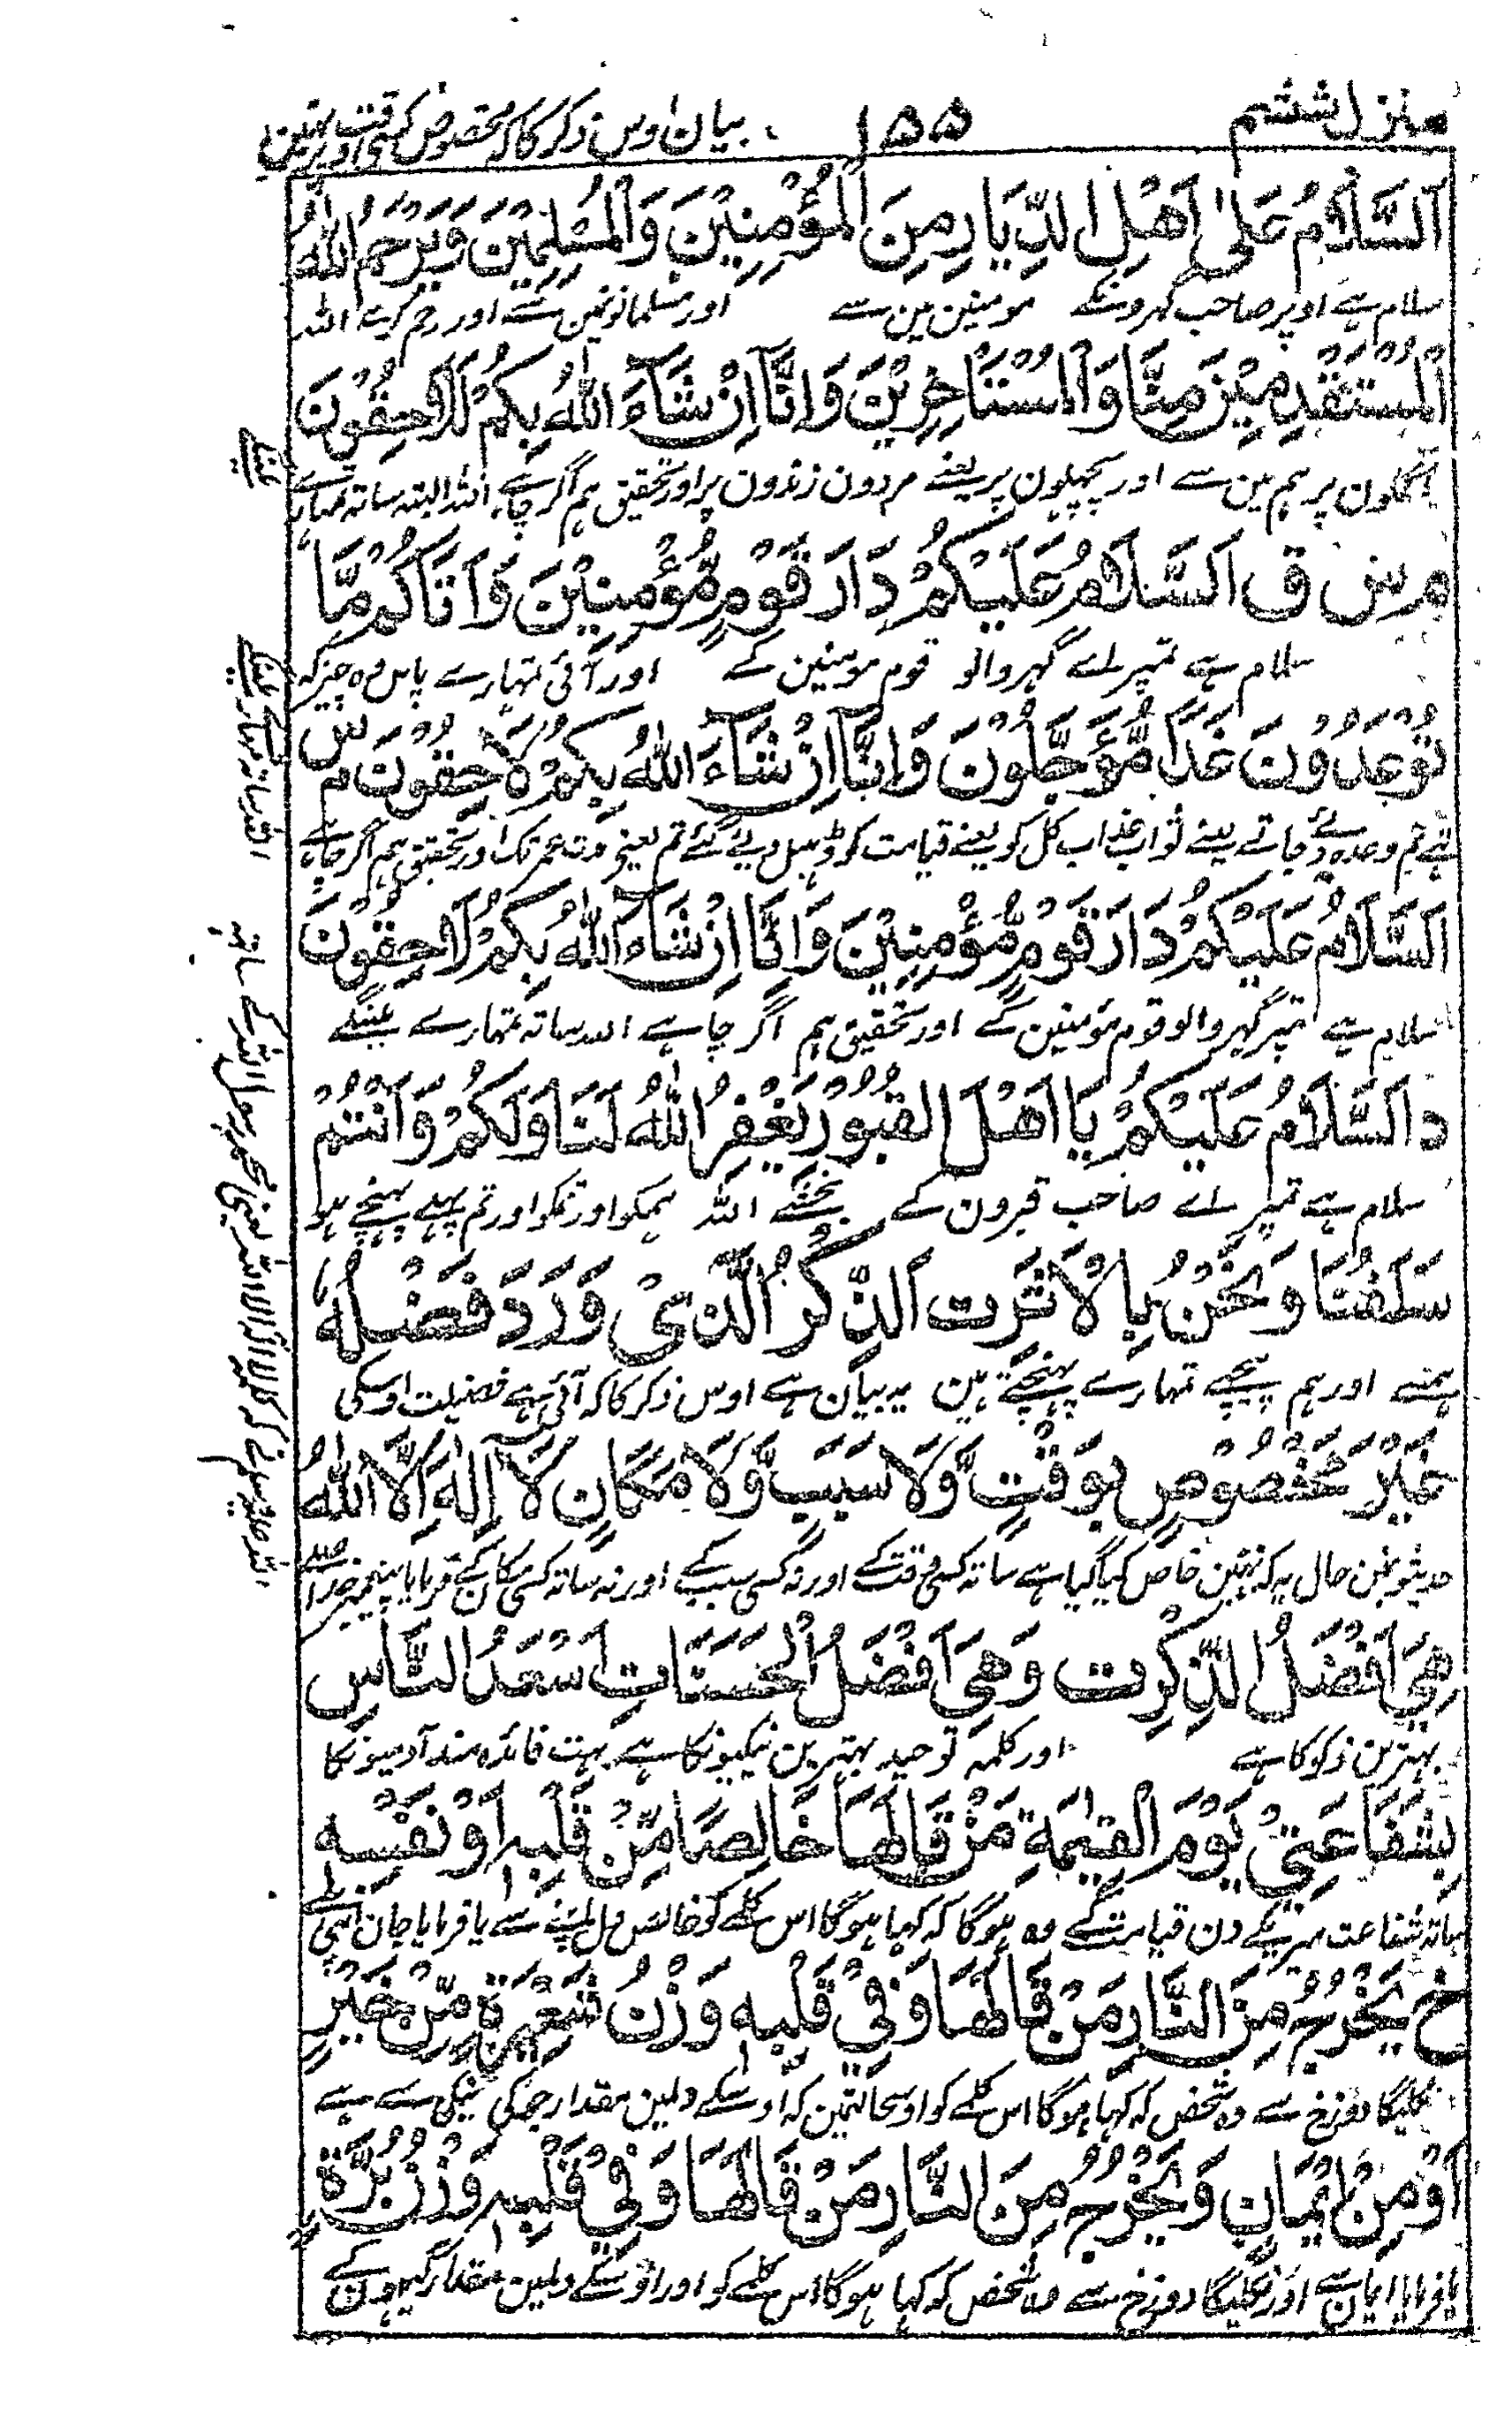 منزل ششم
۱۵۵
بیان اوس ذکر کا کہ مخصوص کسی وقت اور نہین
اَلسَّلَامُ عَلٰی اَهْلِ الدِّيَارِ مِنَ الْمُؤْمِنِيْنَ وَالْمُسْلِمِيْنَ وَيَرْحَمُ اللّٰهُ
سلام ہے اوپر صاحب گہرونکے مومنین مین سے اور مسلمانونمین سے اور رحم کرے اللہ
الْمُسْتَقْدِمِيْنَ مِنَّا وَالْمُسْتَاْخِرِيْنَ وَاِنَّا اِنْ شَآءَ اللّٰهُ بِكُمْ لَلَاحِقُوْنَ
اگلون پر ہم مین سے اور پچہلون پر یعنے مردون زندون پر اور تحقیق ہم اگر چاہے اللہ البتہ ساتہ تمہارے
ملینگے
م س ق اَلسَّلَامُ عَلَيْكُمْ دَارَ قَوْمٍ مُّؤْمِنِيْنَ وَاَتَاكُمْ مَّا
سلام ہے تمپر اے گہر والو قوم مومنین کے اور آئی تمہارے پاس وہ چیز کہ
تُوْعَدُوْنَ غَدًا مُّؤَجَّلُوْنَ وَاِنَّا اِنْ شَآءَ اللّٰهُ بِكُمْ لَاحِقُوْنَ م س
تہے تم وعدہ دئے جاتے یعنے ثواب عذاب کل کو یعنے قیامت کو ڈہیل دیے گئے تم یعنی مدت عمر تک اور تحقیق ہم اگر چاہے
اللہ ساتہ تمہارے ملینگے
اَلسَّلَامُ عَلَيْكُمْ دَارَ قَوْمٍ مُّؤْمِنِيْنَ وَاِنَّا اِنْ شَآءَ اللّٰهُ بِكُمْ لَاحِقُوْنَ
سلام ہے تمپر گہر والو قوم مومنین کے اور تحقیق ہم اگر چاہے اللہ ساتہ تمہارے ملینگے
د اَلسَّلَامُ عَلَيْكُمْ يَا اَهْلَ الْقُبُوْرِ يَغْفِرُ اللّٰهُ لَنَا وَلَكُمْ وَاَنْتُمْ
سلام ہے تمپر اے صاحب قبرون کے بخشے اللہ ہمکو اور تمکو اور تم پہلے پہنچے ہو
سَلَفُنَا وَنَحْنُ بِالْاَثَرِ ت اَلذِّكْرُ الَّذِیْ وَرَدَ فَضْلُهٗ
ہمسے اور ہم پیچہے تمہارے پہنچتے ہین یہ بیان ہے اوس ذکر کا کہ آئی ہے فضیلت اوسکی
غَيْرَ مَخْصُوْصٍ بِوَقْتٍ وَّلَا سَبَبٍ وَّلَا مَكَانٍ لَا اِلٰهَ اِلَّا اللّٰهُ
حدیثونمین حال یہ کہ نہین خاص کیا گیا ہے ساتہ کسی وقت کے اور نہ کسی سبب کے اور نہ ساتہ کسی مکان کے فرمایا پیغمبر خدا صلی
هِیَ اَفْضَلُ الذِّكْرِ ت وَهِیَ اَفْضَلُ الْحَسَنَاتِ اَسْعَدُ النَّاسِ
بہترین ذکر کا ہے اور کلمہ توحید بہترین نیکیونکا ہے بہت فائدہ مند آدمیونکا
بِشَفَاعَتِیْ يَوْمَ الْقِيٰمَةِ مَنْ قَالَهَا خَالِصًا مِّنْ قَلْبِهٖ اَوْ نَفْسِهٖ
ساتہ شفاعت میریکے دن قیامت کے وہ ہوگا کہ کہا ہوگا اس کلمے کو خالص دل اپنے سے یا فرمایا جان اپنی سے
خ يَخْرُجُ مِنَ النَّارِ مَنْ قَالَهَا وَفِیْ قَلْبِهٖ وَزْنُ شَعِيْرَةٍ مِّنْ خَيْرٍ
نکلیگا دوزخ سے وہ شخص کہ کہا ہوگا اس کلمے کو اوسحالتمین کہ اوسکے دلمین مقدار جو کی نیکی سے ہے
اَوْ مِنْ اِيْمَانٍ وَيَخْرُجُ مِنَ النَّارِ مَنْ قَالَهَا وَفِیْ قَلْبِهٖ وَزْنُ بُرَّةٍ
یا فرمایا ایمان سے اور نکلیگا دوزخ سے وہ شخص کہ کہا ہوگا اس کلمے کو اور اوسکے دلمین مقدار گیہون کے